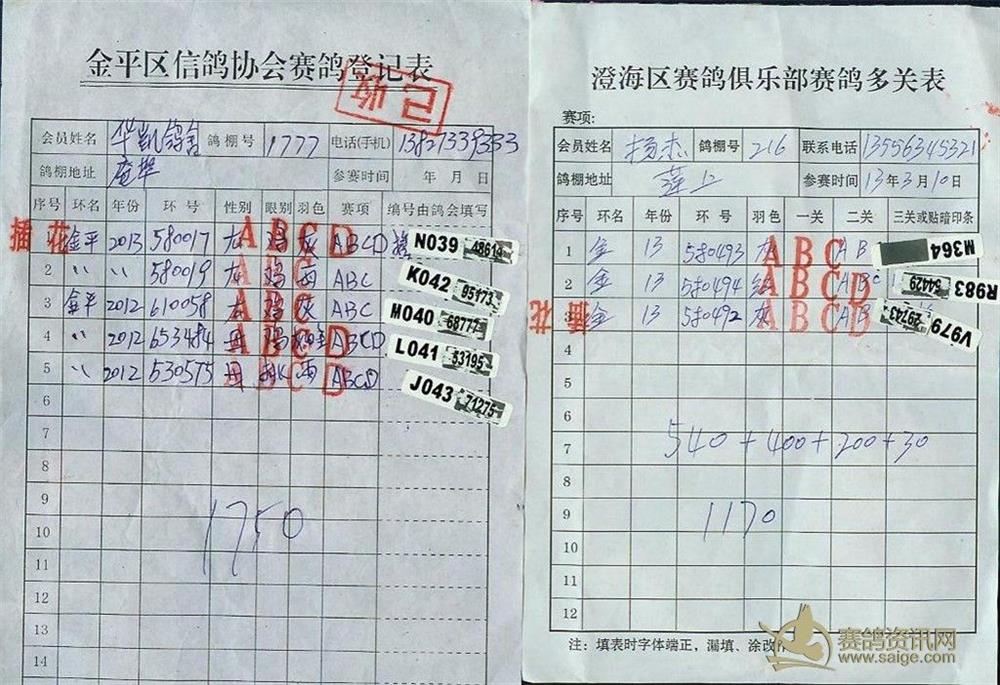 金平区信鸽协会赛鸽登记表
已收
会员姓名 华凯鸽舍 鸽棚号 1777 电话(手机) 13821339333
鸽棚地址 参赛时间 年 月 日
序号 环名 年份 环号 性别 眼别 羽色 赛项 编号由鸽会填写
插花 1 金平 2013 580017 ABCD 鸡 灰 ABCD N039 48614
2 〃 〃 580019 ABC 鸡 雨 ABC K042 95173
3 金平 2012 610058 ABC 鸡 灰 ABC M040 68777
4 〃 2012 653484 ABCD ABCD L041 53195
5 〃 2012 530575 ABCD 雨 ABCD J043 71275
6
7
8
9
10
11
12
13
14
1750
澄海区赛鸽俱乐部赛鸽多关表
赛项:
会员姓名 杨杰 鸽棚号 216 联系电话 13556345321
鸽棚地址 莲上 参赛时间 13年3月10日
序号 环名 年份 环号 羽色 一关 二关 三关或贴暗印条
1 金 13 580493 灰 ABC AB M364
2 金 13 580494 ABCD ABC R983 54429
插花 3 金 13 580492 灰 ABCD AB V979 29743
4
5
6
7 540+400+200+30
8
9 1170
10
11
12
注：填表时字体端正，漏填、涂改
赛鸽资讯网
www.saige.com